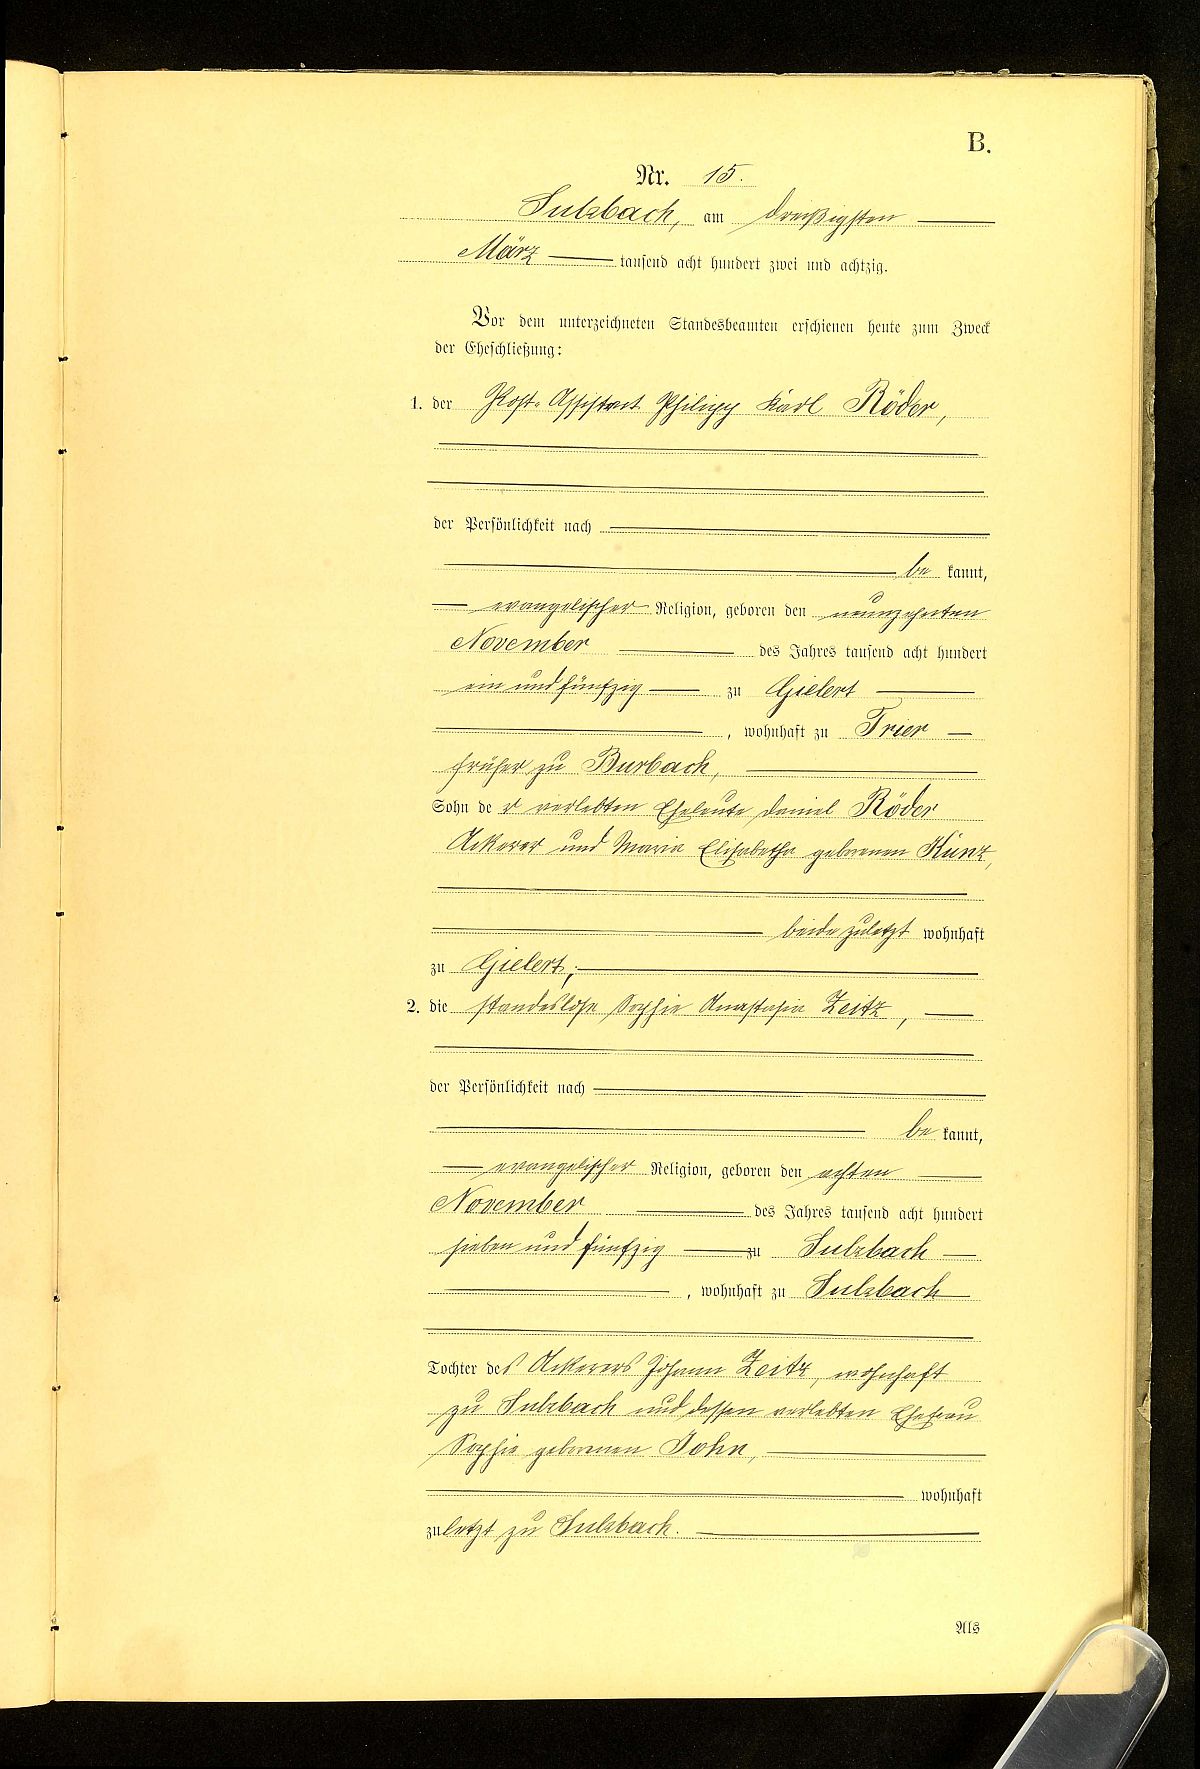 B.
Nr. 15.
Sulzbach, am dreißigsten
März tausend acht hundert zwei und achtzig.
Vor dem unterzeichneten Standesbeamten erschienen heute zum Zweck
der Eheschließung:
1. der Post-Assistent Philipp Karl Röder,
der Persönlichkeit nach
be kannt,
evangelischer Religion, geboren den neunzehnten
November des Jahres tausend acht hundert
ein und fünfzig zu Gielert
, wohnhaft zu Trier
früher zu Burbach,
Sohn de r verlebten Eheleute Daniel Röder
Ackerer und Maria Elisabetha geborenen Kunz,
beide zuletzt wohnhaft
zu Gielert;
2. die standeslose Sophie Anastasia Zeitz,
der Persönlichkeit nach
be kannt,
evangelischer Religion, geboren den achten
November des Jahres tausend acht hundert
sieben und fünfzig zu Sulzbach
, wohnhaft zu Sulzbach
Tochter des Ackerers Johann Zeitz, wohnhaft
zu Sulzbach und dessen verlebten Ehefrau
Sophie geborenen John,
wohnhaft
zuletzt zu Sulzbach.
Als